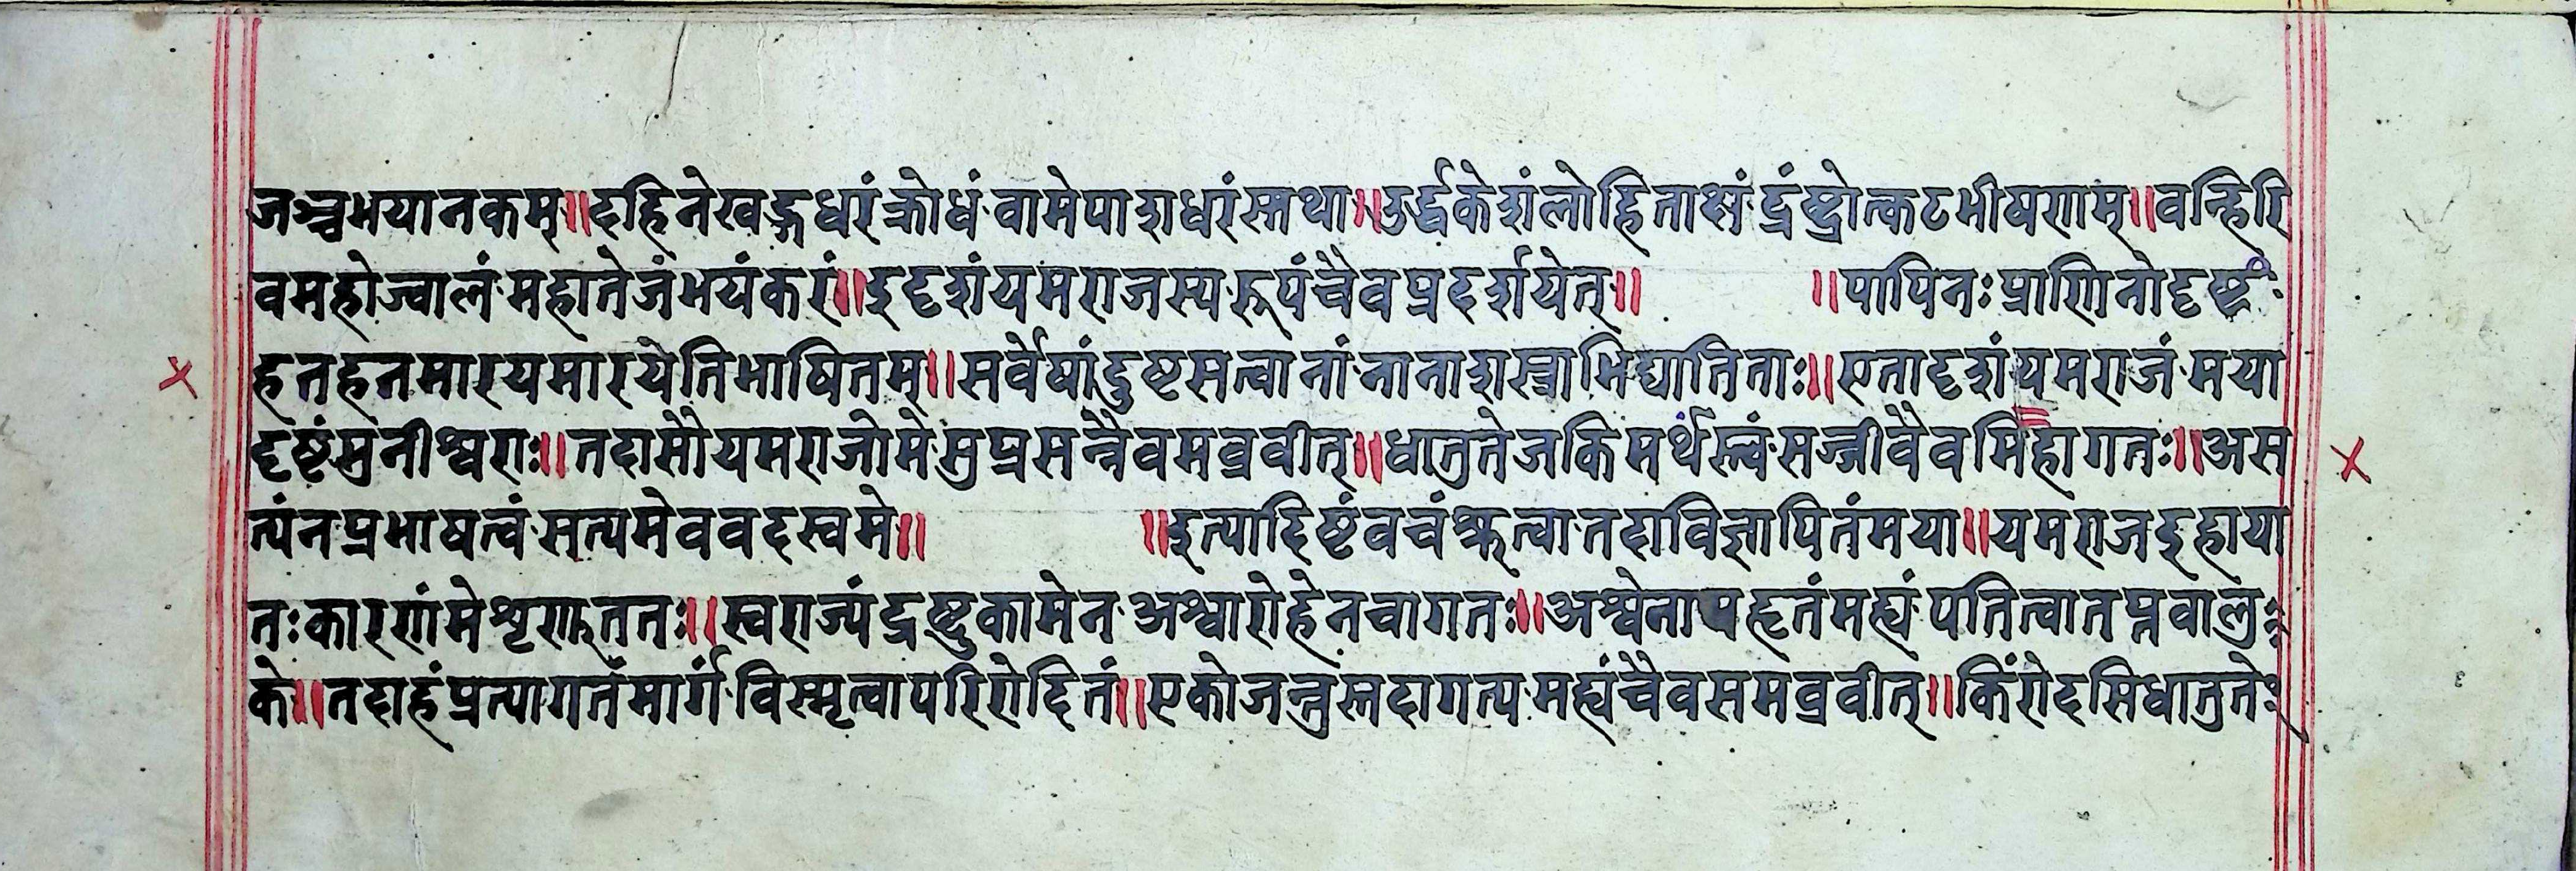 जञ्चभयानकम्॥दहिनेखड्गधरंक्रोधंवामेपाशधरंस्तथा॥उर्द्धकेशंलोहिताक्षंद्रंष्ट्रोत्कटभीषणम्॥वन्हिरि
वमहोज्वालंमहातेजंभयंकरं॥इदृशंयमराजस्यरूपंचैवप्रदर्शयेत्॥ ॥पापिनःप्राणिनोदृष्ट्वा
हनहनमारयमारयेतिभाषितम्॥सर्वेषांदुष्टसत्वानांनानाशस्त्राभिद्यातिताः॥एतादृशंयमराजंमया
दृष्टंमुनीश्वराः॥तदासौयमराजोमेसुप्रसन्नैवमव्रवीत्॥धातुतेजकिमर्थंस्त्वंसज्जीवैवमिहागतः॥अस
त्यंनप्रभाषत्वंसत्यमेववदस्वमे॥ ॥इत्यादिष्टंवचंश्रुत्वातदाविज्ञापितंमया॥यमराजइहाया
तःकारणंमेशृणुततः॥स्वराज्यंद्रष्टुकामेनअश्वारोहेनचागतः॥अश्वेनापहृतंमह्यंपतित्वातप्नवालु
के॥तदाहंप्रत्यागतंमार्गंविस्मृत्वापरिरोदितं॥एकोजन्तुस्तदागत्यमह्यंचैवसमव्रवीत्॥किंरोदसिधातुते